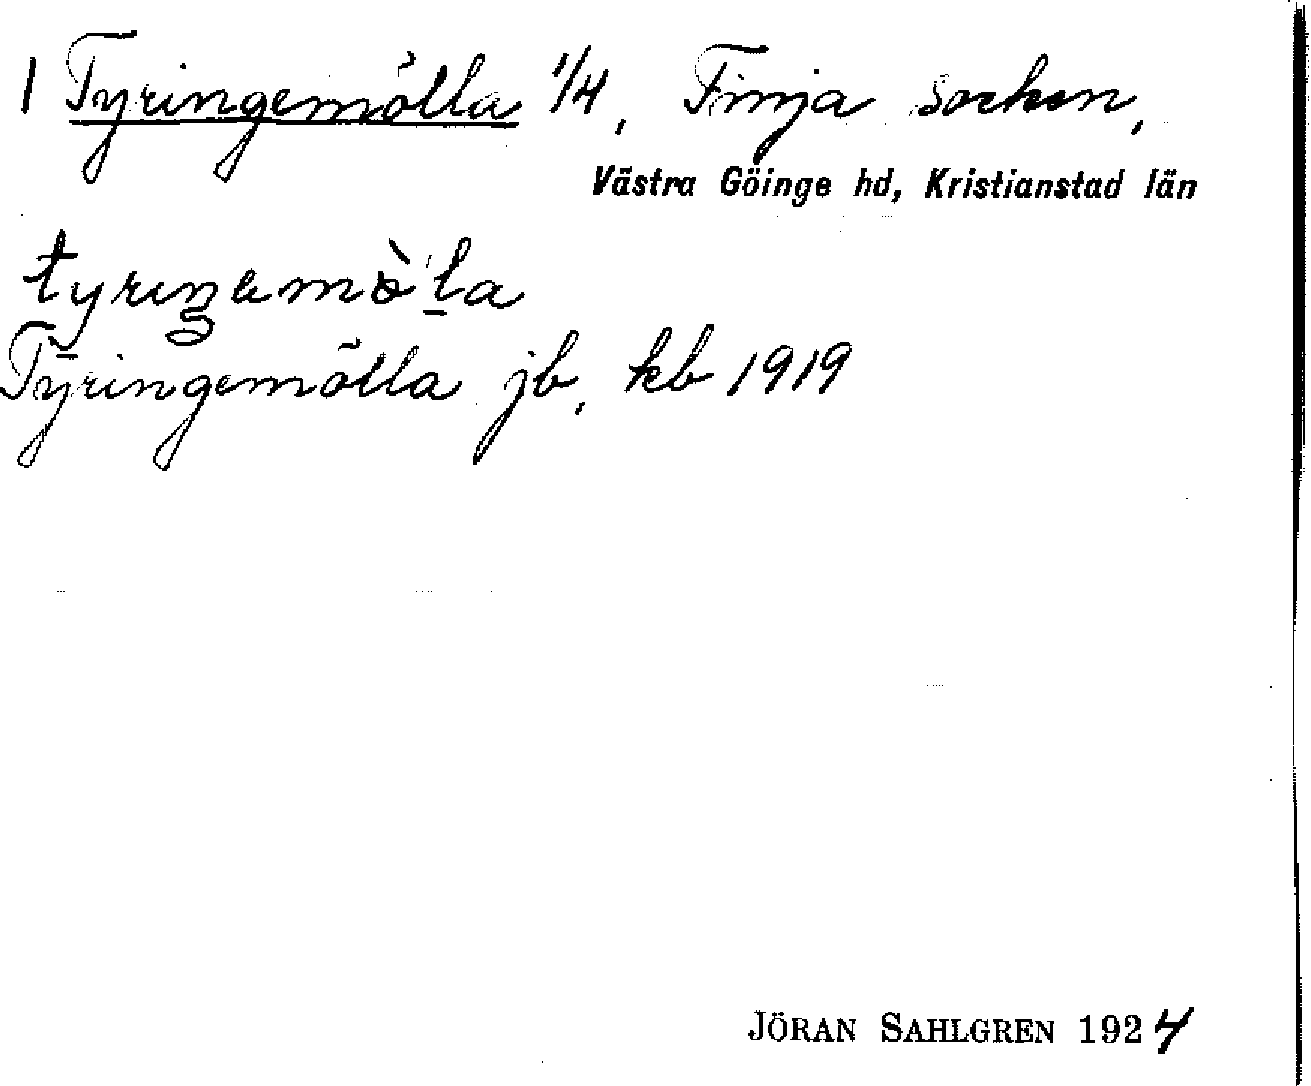 1 Tyringemölla 1/4, Finja socken,
Västra Göinge hd, Kristianstad län
tyriŋəmø̀la
Tyringemölla jb, kb 1919
JÖRAN SAHLGREN 1924